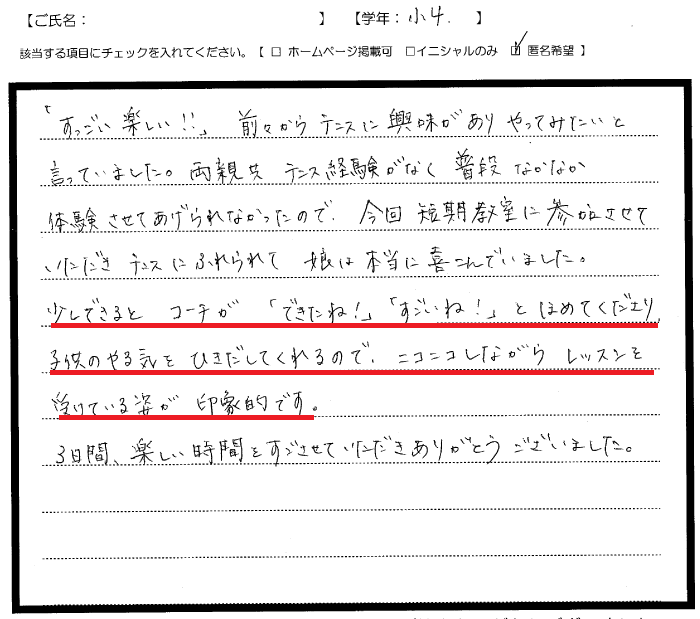 【ご氏名： 】 【学年：小4. 】
該当する項目にチェックを入れてください。【 □ ホームページ掲載可 □イニシャルのみ ☑ 匿名希望 】
「すっごい楽しい!!」 前々からテニスに興味がありやってみたいと
言っていました。両親共 テニス経験がなく 普段 なかなか
体験させてあげられなかったので、今回 短期教室に参加させて
いただき テニスにふれられて 娘は本当に喜こんでいました。
少しできると コーチが 「できたね!」「すごいね!」とほめてくださり、
子供のやる気を ひきだしてくれるので、ニコニコしながら レッスンを
受けている姿が 印象的です。
3日間、楽しい時間をすごさせていただきありがとうございました。